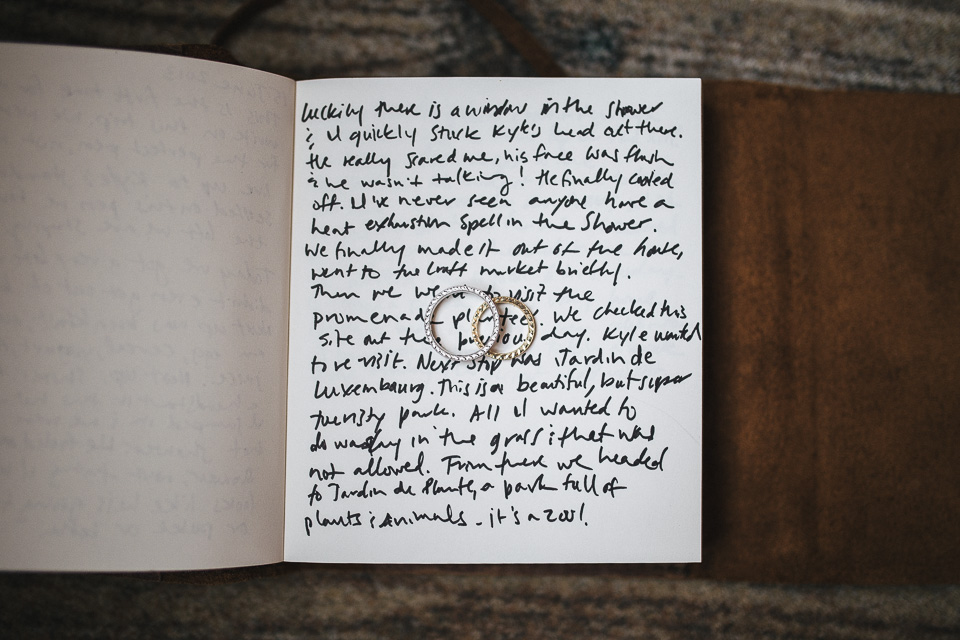 luckily there is a window in the shower
& I quickly stuck Kyle's head out there.
He really scared me, his face was flush
& he wasn't talking! He finally cooled
off. I've never seen anyone have a
heat exhaustion spell in the shower.
We finally made it out of the house,
went to the craft market briefly.
Then we went to visit the
promenade plantee. We checked this
site out the previous day. Kyle wanted
to re visit. Next stop was Jardin de
Luxembourg. This is a beautiful, but super
touristy park. All I wanted to
do was lay in the grass & that was
not allowed. From there we headed
to Jardin de Plante, a park full of
plants & animals - it's a zoo!